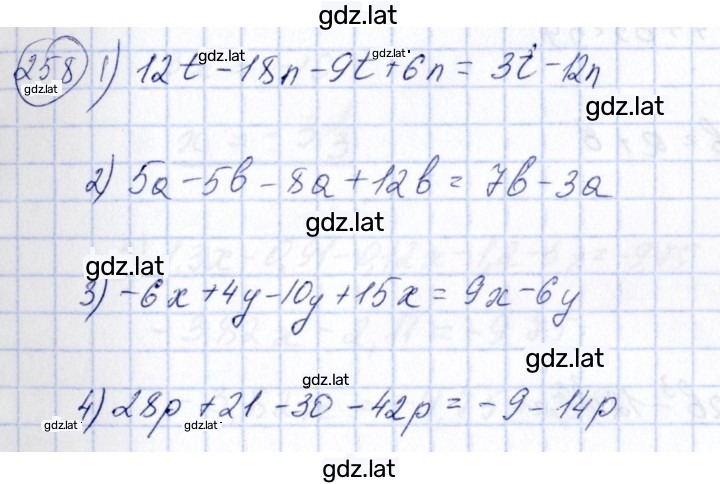 gdz.lat
258 1) 12t - 18n - 9t + 6n = 3t - 12n
gdz.lat gdz.lat gdz.lat
gdz.lat
2) 5a - 5b - 8a + 12b = 7b - 3a
gdz.lat
gdz.lat
3) -6x + 4y - 10y + 15x = 9x - 6y
gdz.lat
gdz.lat
4) 28p + 21 - 30 - 42p = -9 - 14p
gdz.lat gdz.lat
gdz.lat